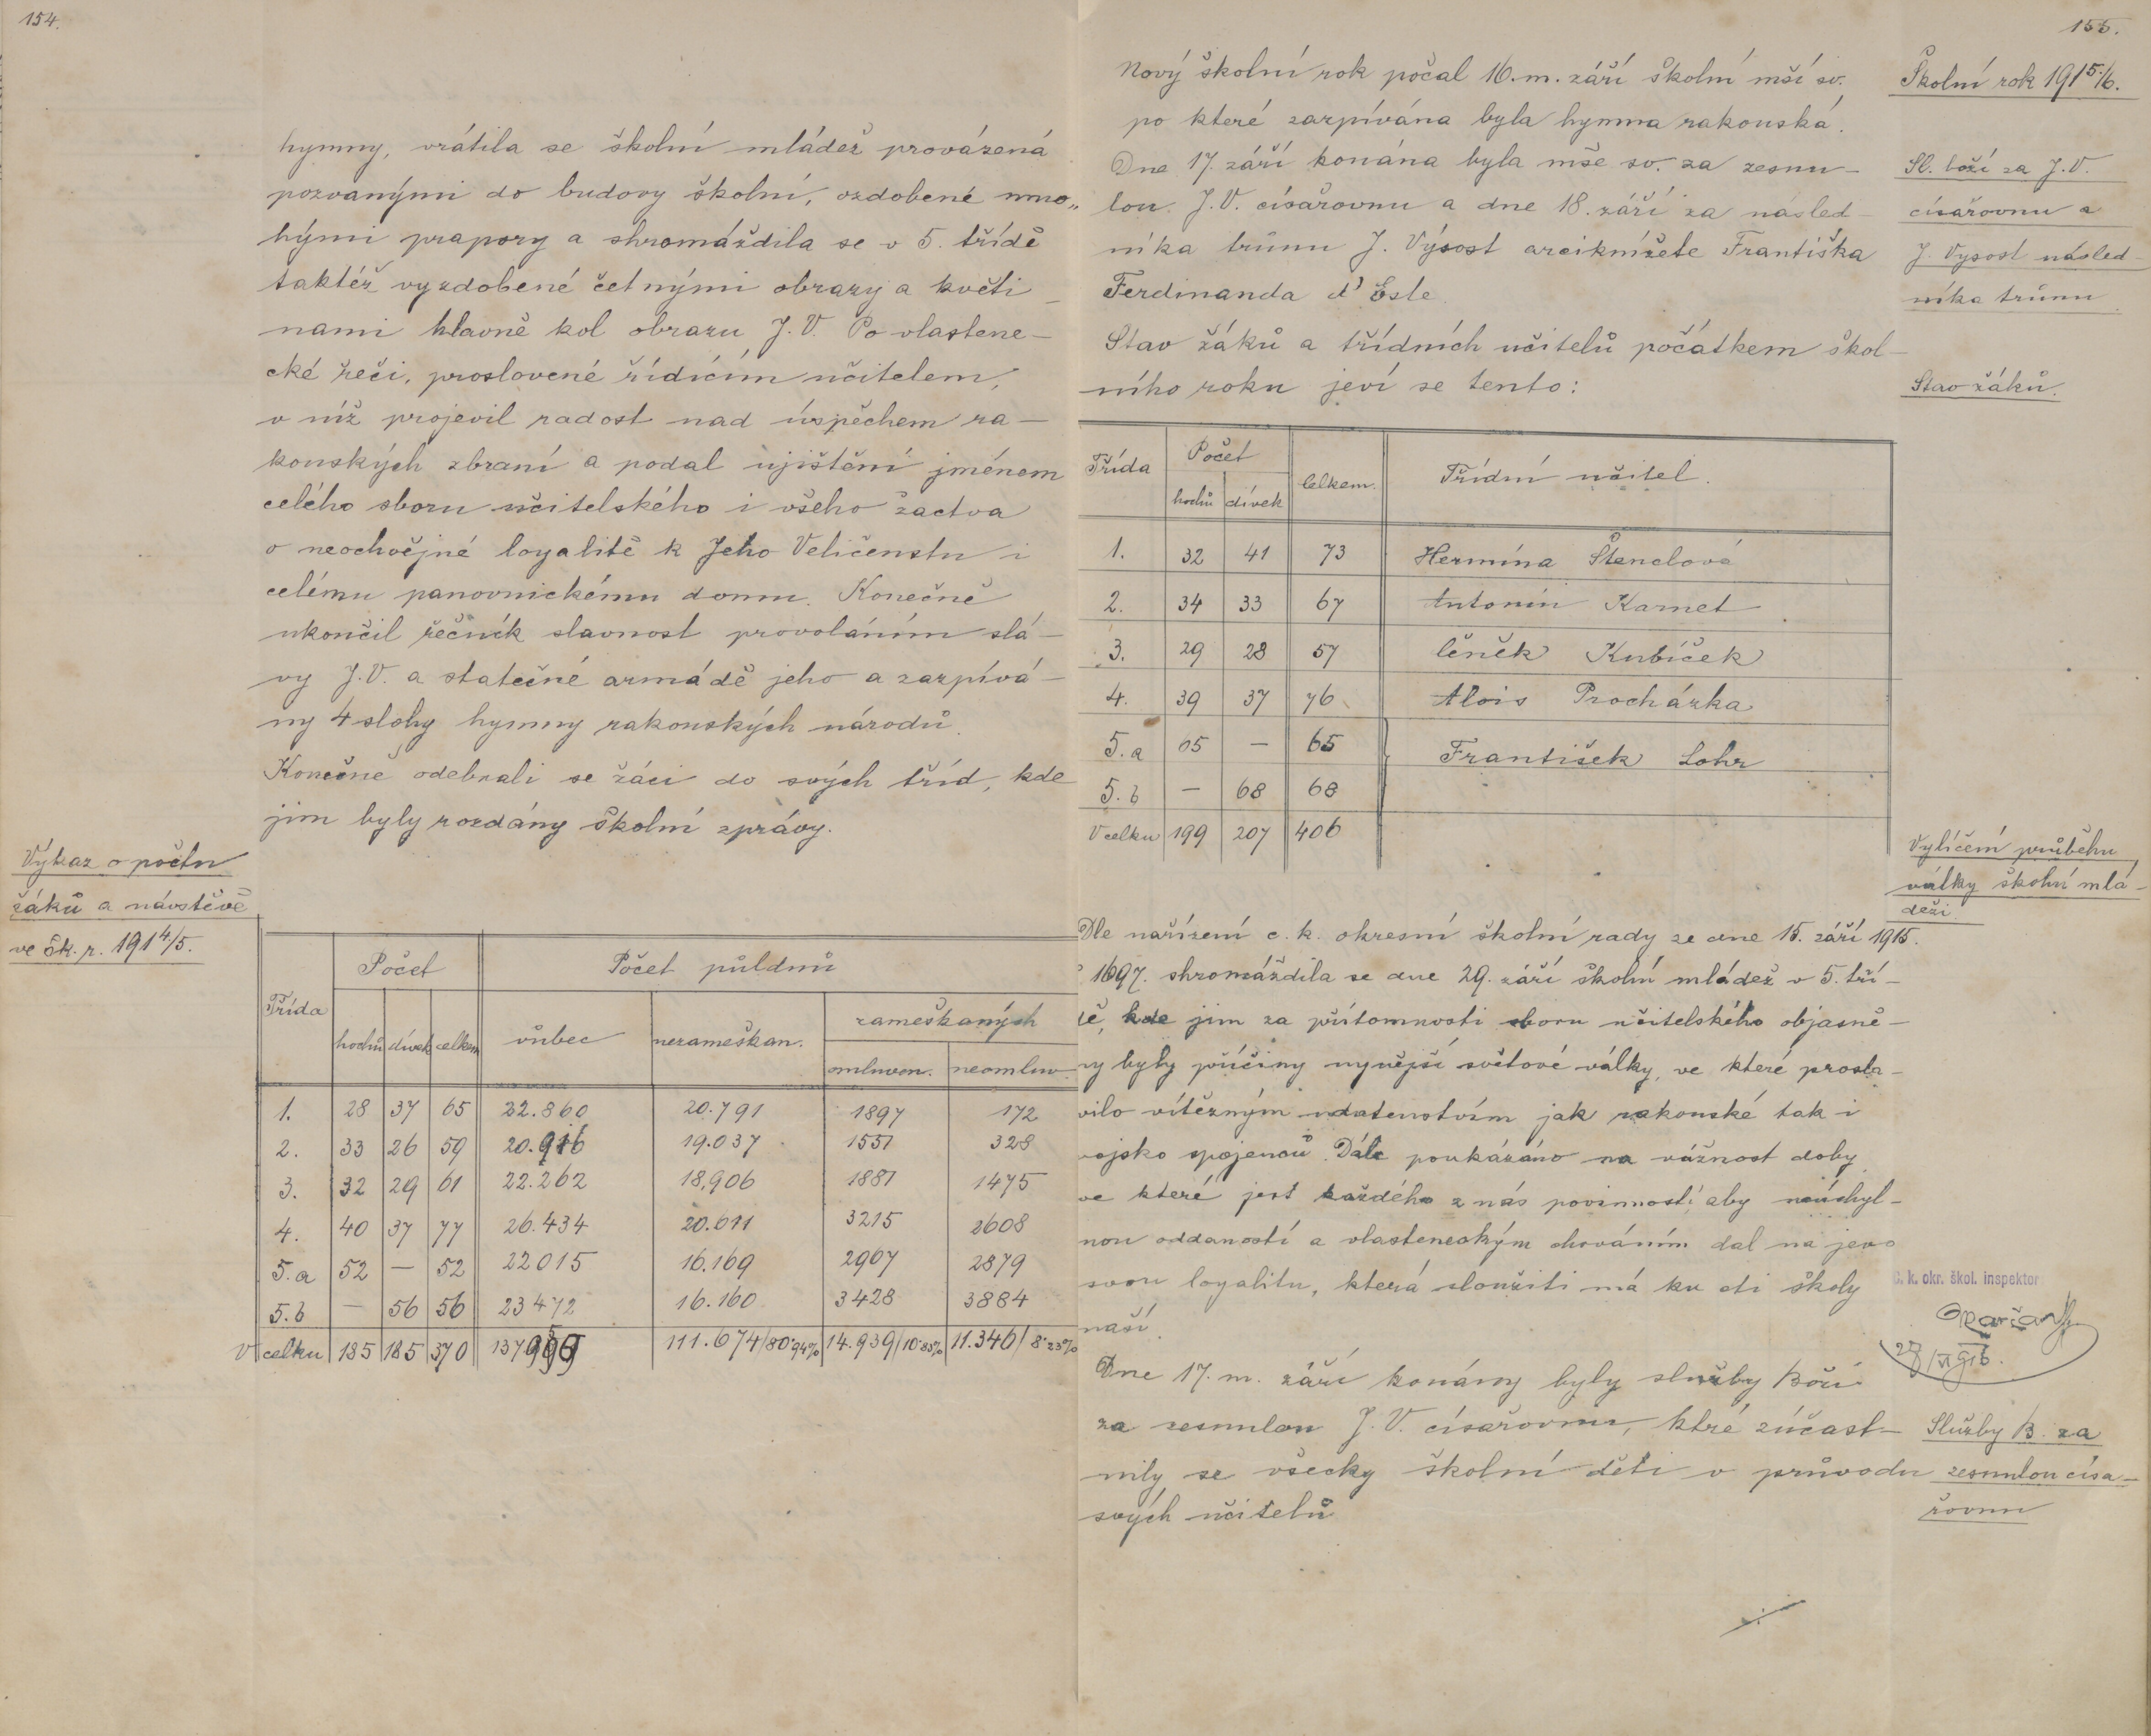 154.
hymny, vrátila se školní mládež provázená
pozvanými do budovy školní, ozdobené mno„
hými prapory a shromáždila se v 5. třídě
taktéž vyzdobené četnými obrazy a květi_
nami hlavně kol obrazu J. V. Po vlastene-
cké řeči, proslovené řídícím učitelem,
v níž projevil radost nad úspěchem ra-
kouských zbraní a podal ujištění jménem
celého sboru učitelského i všeho žactva
o neochvějné loyalitě k Jeho Veličenstu i
celému panovnickému domu. Konečně
ukončil řečník slavnost provoláním slá-
vy J. V. a statečné armádě jeho a zazpívá-
ny 4 slohy hymny rakouských národů.
Konečně odebrali se žáci do svých tříd, kde
jim byly rozdány školní zprávy.
Výkaz o počtu
žáků a návstěvě
ve šk. r. 1914/5.
Třída Počet Počet půldnů
hochů dívek celkem vůbec nezameškan. zameškaných
omluven. neomluv
1. 28 37 65 22.860 20.791 1897 172
2. 33 26 59 20.916 19.037 1551 328
3. 32 29 61 22.262 18,906 1881 1475
4. 40 37 77 26.434 20.611 3215 2608
5. a 52 — 52 22015 16.169 2967 2879
5. b — 56 56 23472 16.160 3428 3884
V celku 185 185 370 137959 111.674/80·94% 14.939/10·83% 11.346/8·23%
155.
Nový školní rok počal 16. m. září školní mší sv.
po které zazpívána byla hymna rakouská.
Dne 17. září konána byla mše sv. za zesnu-
lou J. V. císařovnu a dne 18. září za násled-
níka trůnu J. Výsost arciknížete Františka
Ferdinanda d' Este.
Stav žáků a třídních učitelů počátkem škol-
ního roku jeví se tento:
Školní rok 1915/6.
Sl. boží za J. V.
císařovnu a
J. Vysost násled-
níka trůnu
Stav žáků.
Třída Počet Celkem. Třídní učitel.
hochů dívek
1. 32 41 73 Hermína Štenclová
2. 34 33 67 Antonín Kamet
3. 29 28 57 Čeněk Kubíček
4. 39 37 76 Alois Procházka
5. a 65 — 65 František Lohr
5. b — 68 68
V celku 199 207 406
Vylíčení průběhu
války školní mlá-
deži.
Dle nařízení c. k. okresní školní rady ze dne 15. září 1915.
1697. shromáždila se dne 29. září školní mládež v 5. tří-
dě, kde jim za přítomnosti sboru učitelského objasně-
ny byly příčiny nynější světové války, ve které prosla-
vilo vítězným udatenstvím jak rakouské tak i
vojsko spojenců. Dále poukázáno na vážnost doby
ve které jest každého z nás povinností, aby neúchyl-
nou oddaností a vlasteneckým chováním dal na jevo
svou loyalitu, která sloužiti má ku cti školy
naší.
C. k. okr. škol. inspektor
Dne 17. m. září konány byly služby Boží
za zesnulou J. V. císařovnu, ktré zúčast-
nily se všecky školní děti v průvodu
svých učitelů
Služby B. za
zesnulou císa-
řovnu